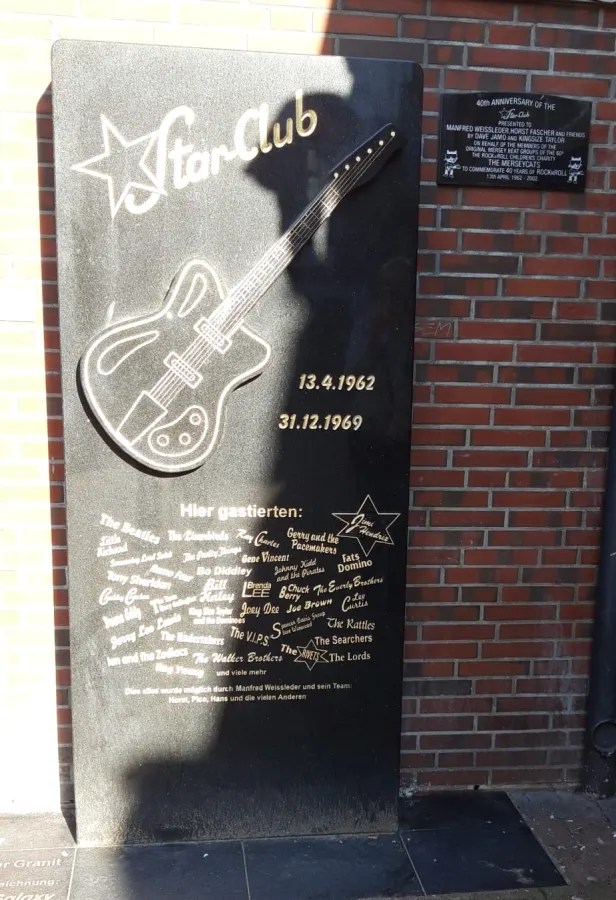 Star Club
13.4.1962
31.12.1969
Hier gastierten:
The Beatles
The Liverbirds
Ray Charles
Gerry and the
Pacemakers
Jimi
Hendrix
Little
Richard
The Pretty Things
Gene Vincent
Johnny Kidd
and the Pirates
Fats
Domino
Tony Sheridan
Bo Diddley
Bill
Haley
Brenda
LEE
Chuck
Berry
The Everly Brothers
Duane Eddy
King Size Taylor
and the Dominoes
Joey Dee
Joe Brown
Lee
Curtis
Jerry Lee Lewis
The Undertakers
The V.I.P.S.
Spencer Davis Group
The Rattles
The Searchers
Ian and the Zodiacs
The Walker Brothers
The RIVETS
The Lords
Roy Young
und viele mehr
Dies alles wurde möglich durch Manfred Weissleder und sein Team:
Horst, Pico, Hans und die vielen Anderen
40th ANNIVERSARY OF THE
Star-Club
PRESENTED TO
MANFRED WEISSLEDER, HORST FASCHER AND FRIENDS
BY DAVE JAMO AND KINGSIZE TAYLOR
ON BEHALF OF THE MEMBERS OF THE
ORIGINAL MERSEY BEAT GROUPS OF THE 60s
THE ROCK n ROLL CHILDRENS CHARITY
THE MERSEYCATS
TO COMMEMORATE 40 YEARS OF ROCKnROLL
13th APRIL 1962 - 2002
er Granit
eichnung:
Galaxy